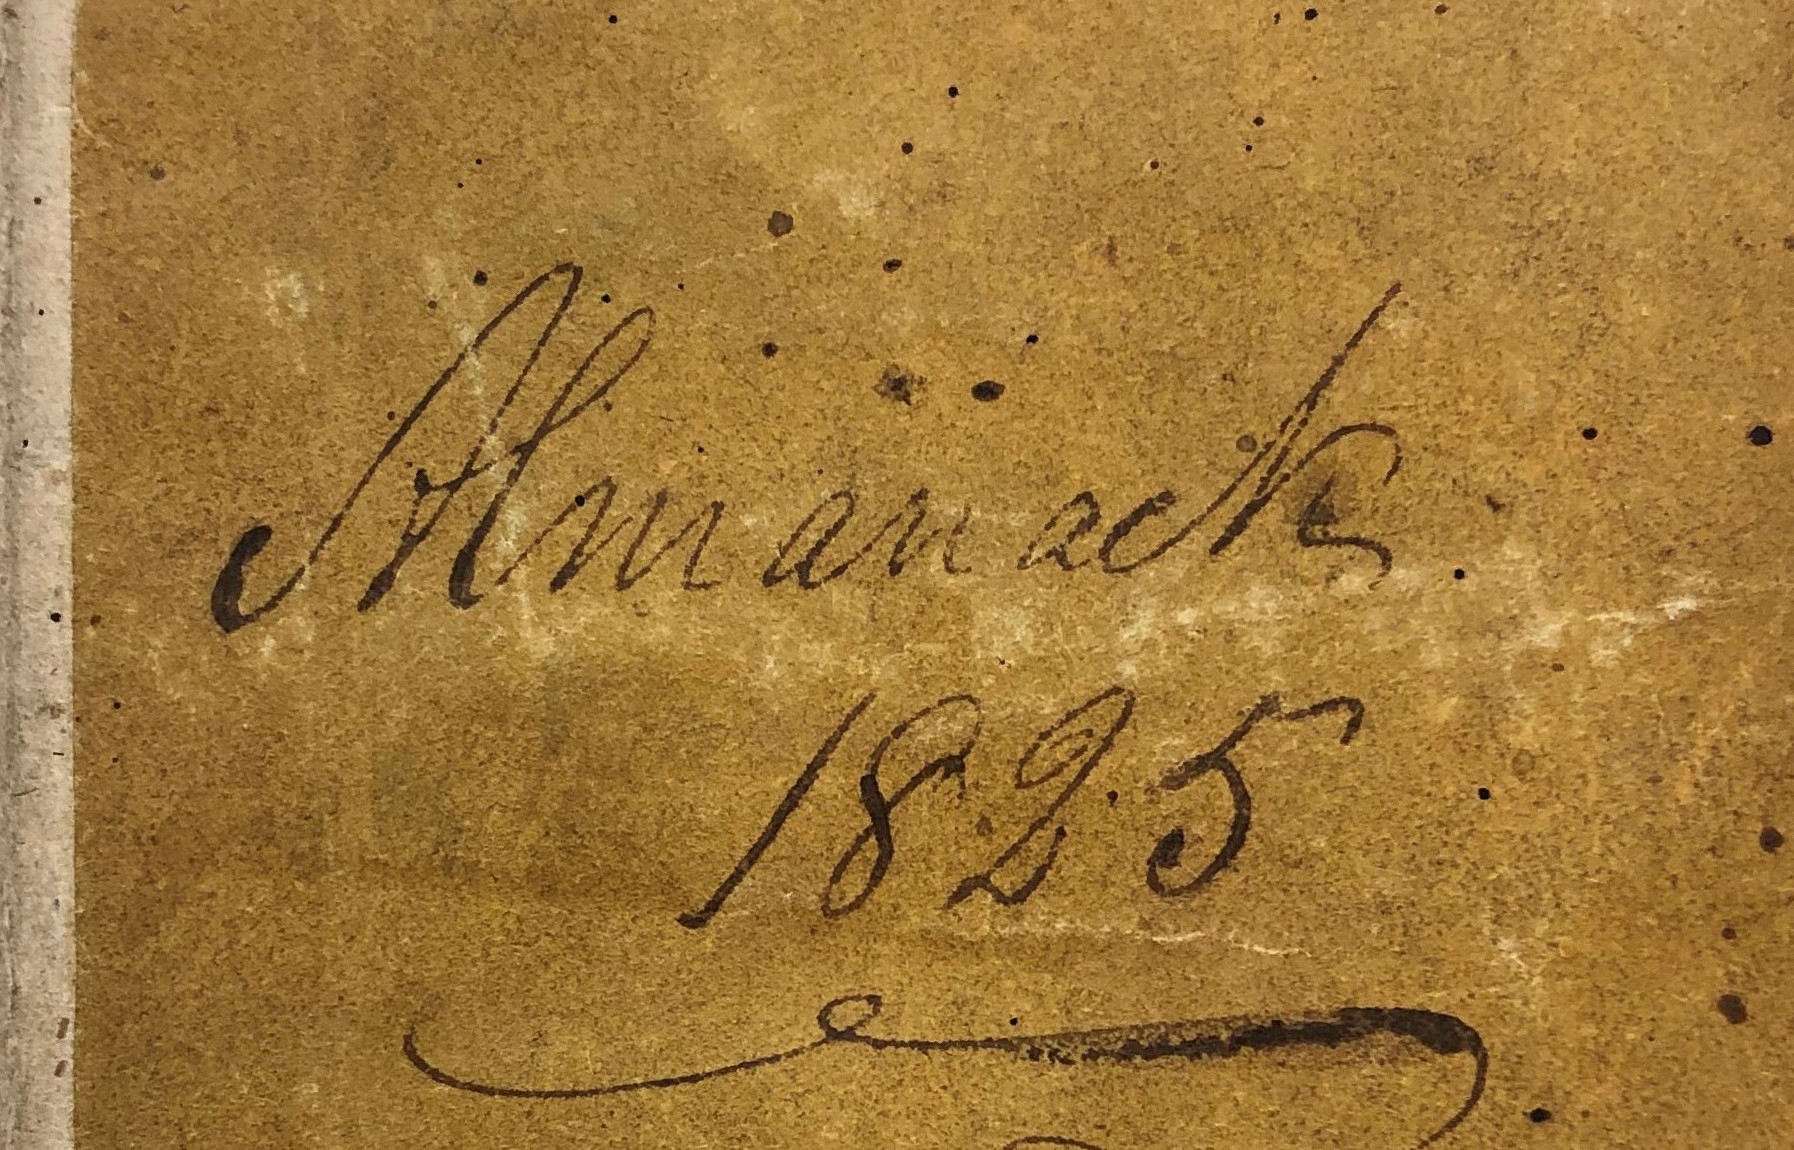 Almanack
1825